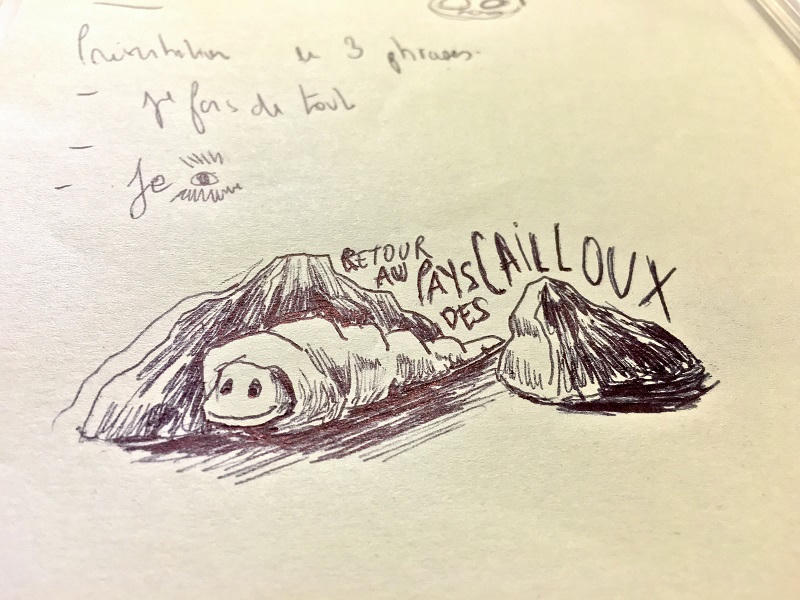 Présentation en 3 phrases.
- je fais de tout
-
- Je
RETOUR
AU PAYS CAILLOUX
DES